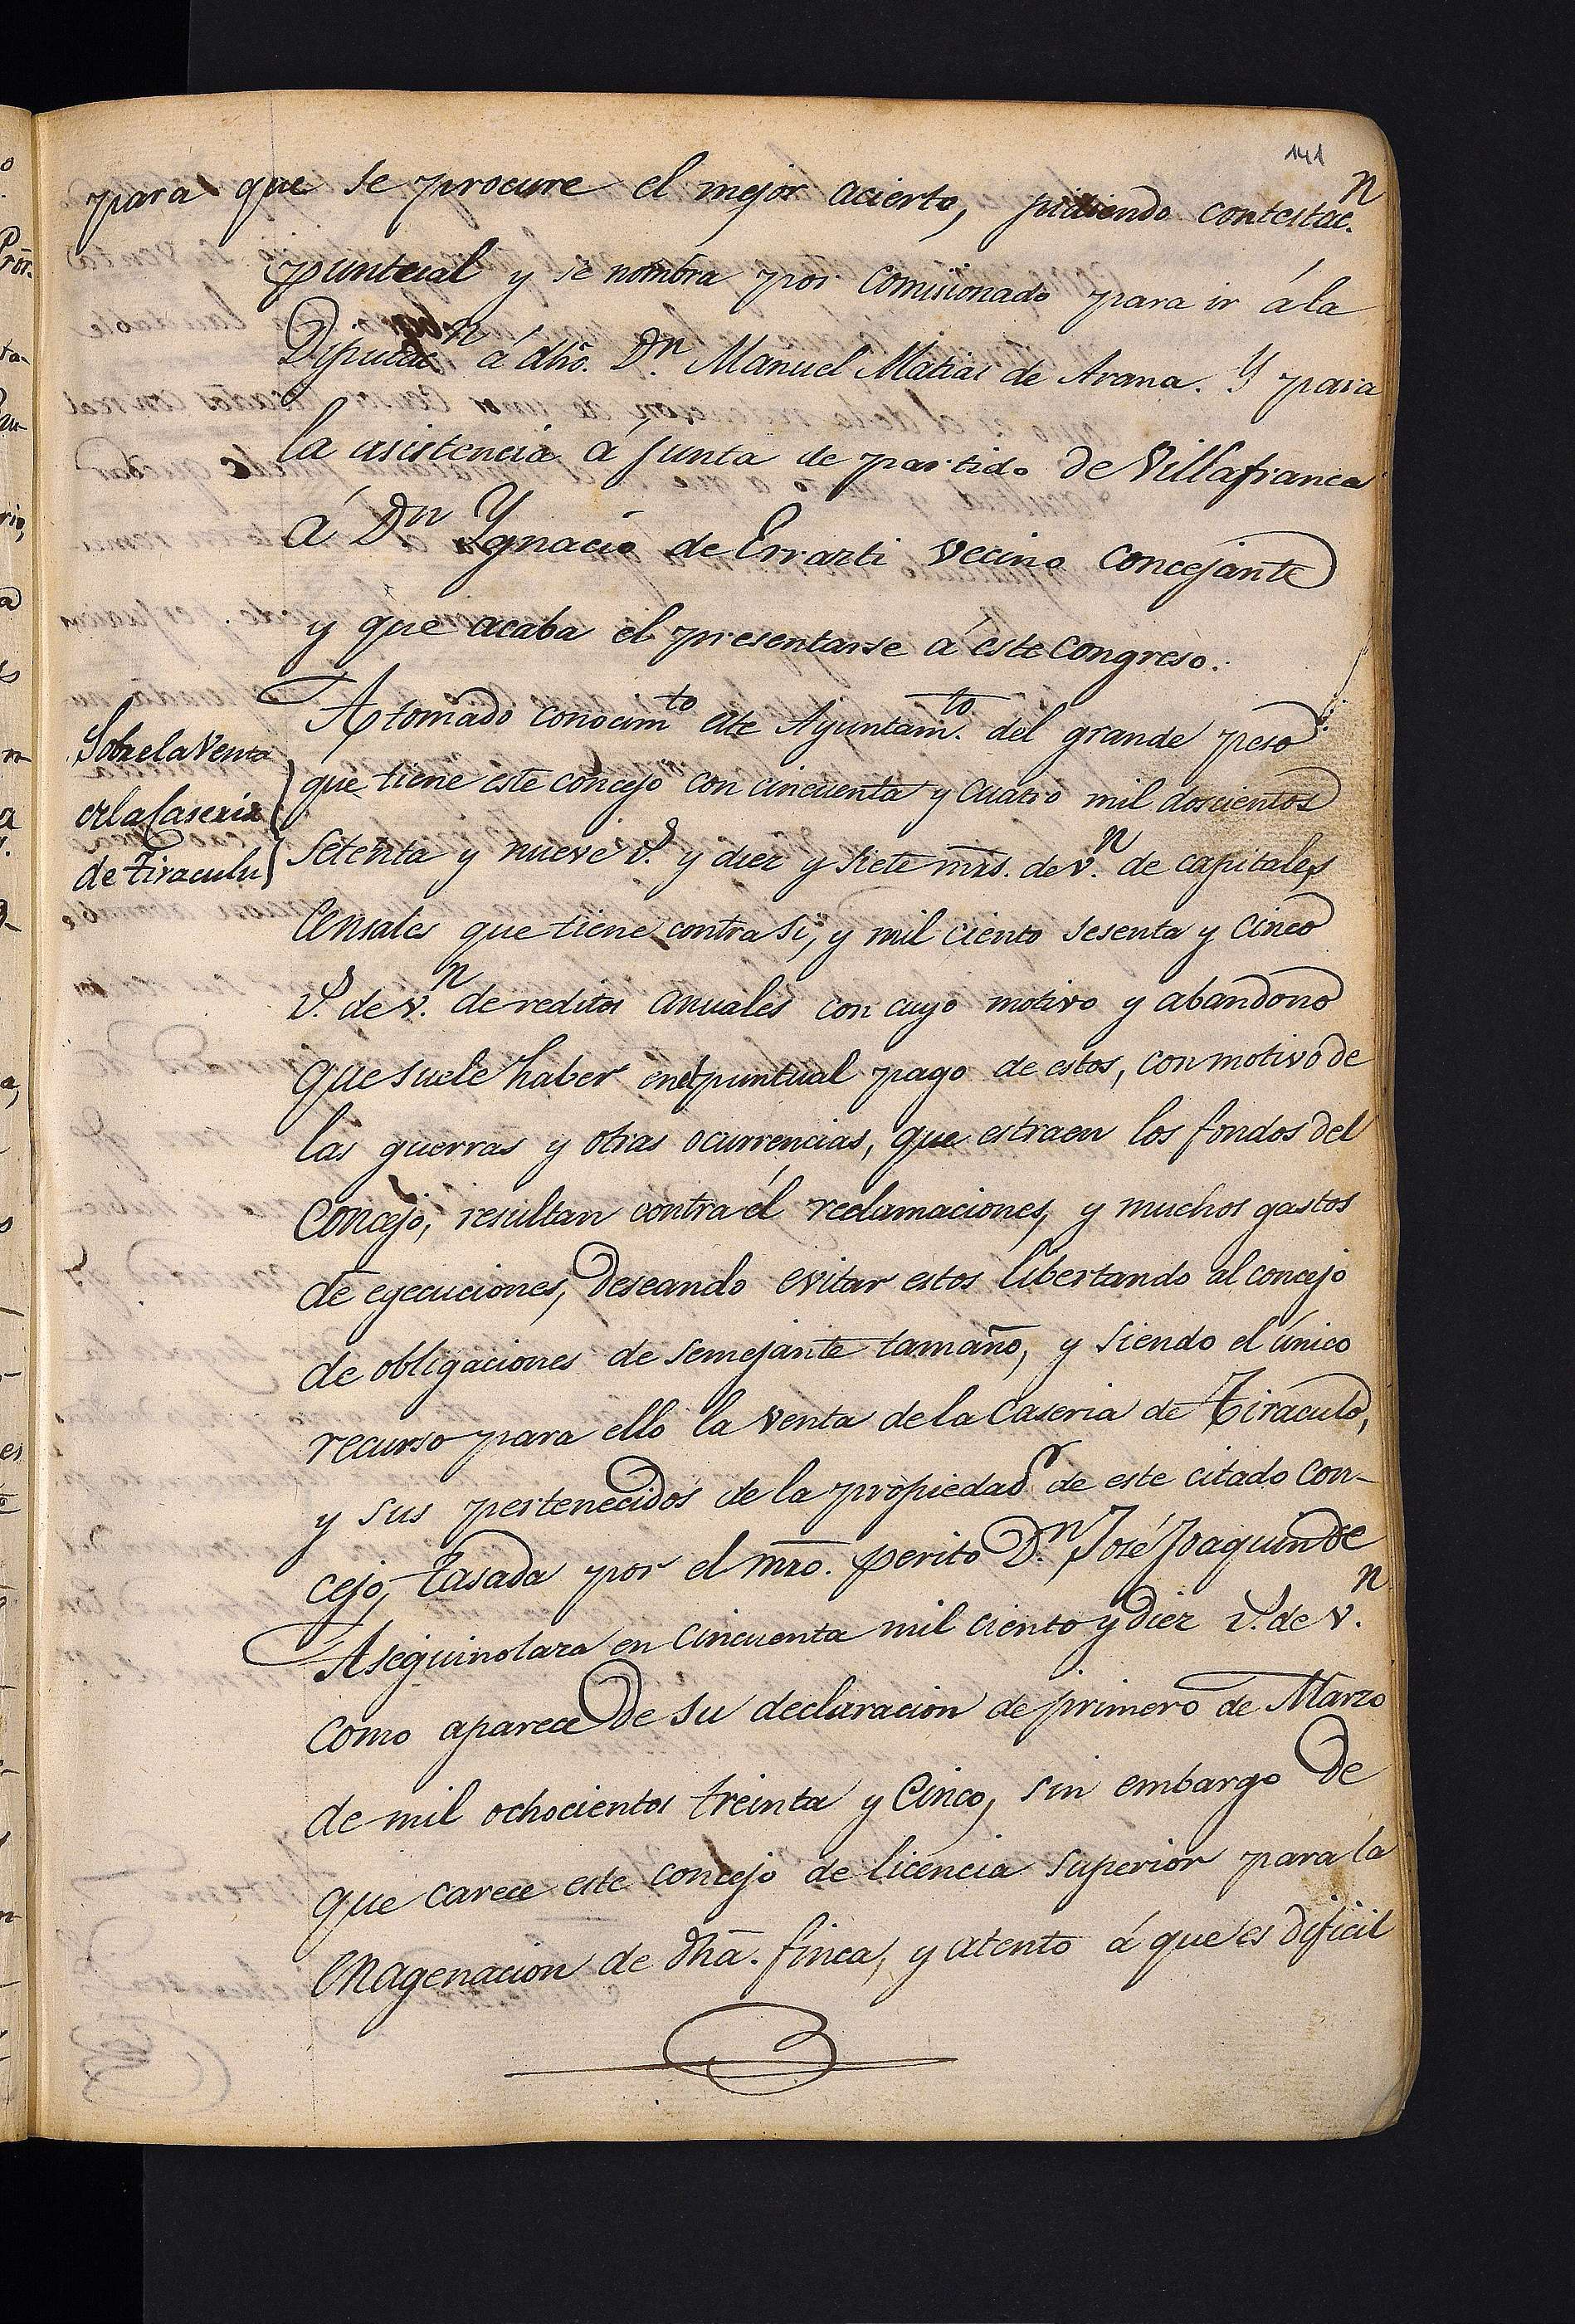 141
para que se procure el mejor acierto, pidiendo contestac.n
puntual y se nombra por comisionado para ir á la
Diputac.n á dho. D.n Manuel Matias de Arana. Y para
la asistencia á Junta de partido de Villafranca
á Dn Ygnacio de Errazti vecino concejante
y que acaba el presentarse á este Congreso.
Sobre la Venta
de la Caseria
de Tiraculu
A tomado conocimto este Ayuntam.to del grande peso
que tiene este concejo con cincuenta y cuatro mil doscientos
setenta y nueve r.s y diez y siete mrs. de v.n de capitales
Censales que tiene contra si, y mil ciento sesenta y cinco
r.s de v.n de reditos anuales con cuyo motivo y abandono
que suele haber en el puntual pago de estos, con motivo de
las guerras y otras ocurrencias, que estraen los fondos del
Concejo, resultan contra él reclamaciones, y muchos gastos
de egecuciones, deseando evitar estos libertando al concejo
de obligaciones de semejante tamaño, y siendo el único
recurso para ello la venta de la Caseria de Tiraculo,
y sus pertenecidos de la propiedad de este citado con-
cejo, tasada por el mro. perito D.n José Joaquin de
Aseguinolaza en cincuenta mil ciento y diez r.s de v.n
como aparece de su declaracion de primero de Marzo
de mil ochocientos treinta y cinco, sin embargo de
que carece este concejo de licencia superior para la
enagenacion de dha. finca, y atento á que es dificil